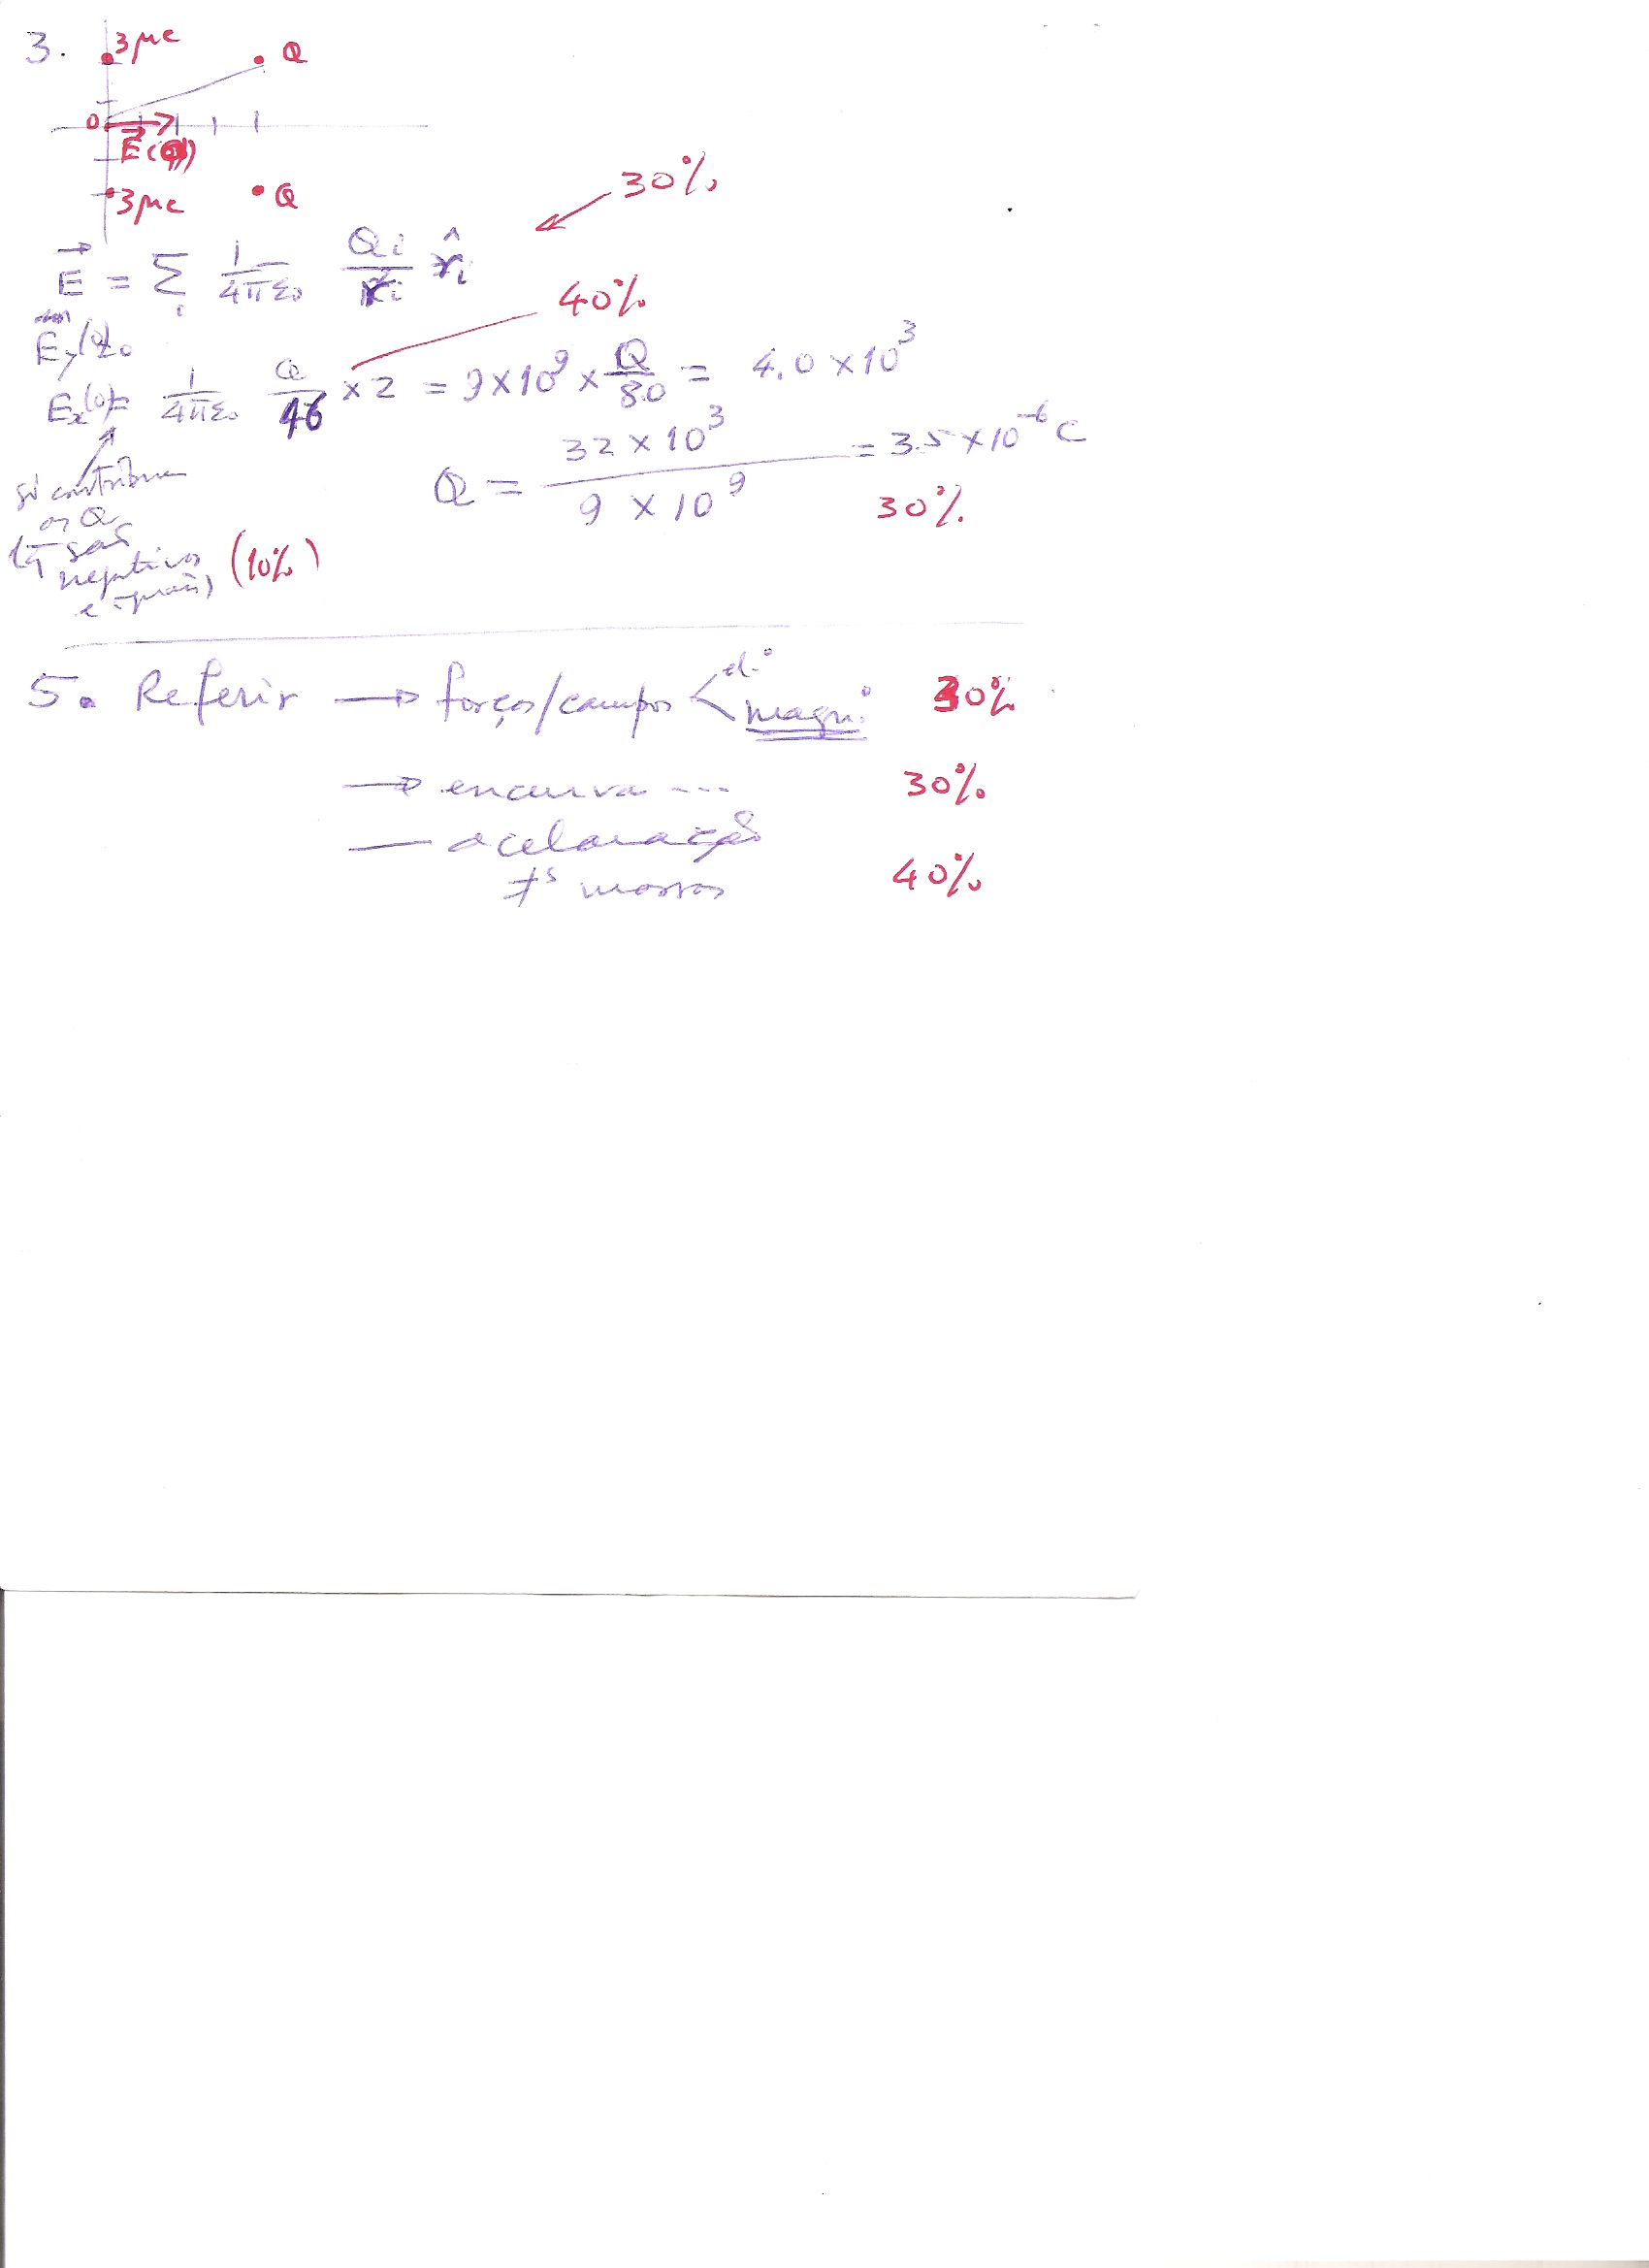 3.
3μc
Q
0
E⃗(0)
3μc
Q
30%
E⃗ = Σ_i 1/(4πε₀) Qi/ri² r̂i
40%
Ey(0)=0
Ex(0)= 1/(4πε₀) Q/16 × 2 = 9×10⁹ × Q/8.0 = 4.0 × 10³
Q = 32 × 10³ / 9 × 10⁹ = 3.5 × 10⁻⁶ C
só contribuem
os Q
são
negativos (10%)
e iguais)
30%
5. Referir → forças/campos < el.º magn.º 30%
→ encurva ... 30%
— aceleração
≠s massas 40%